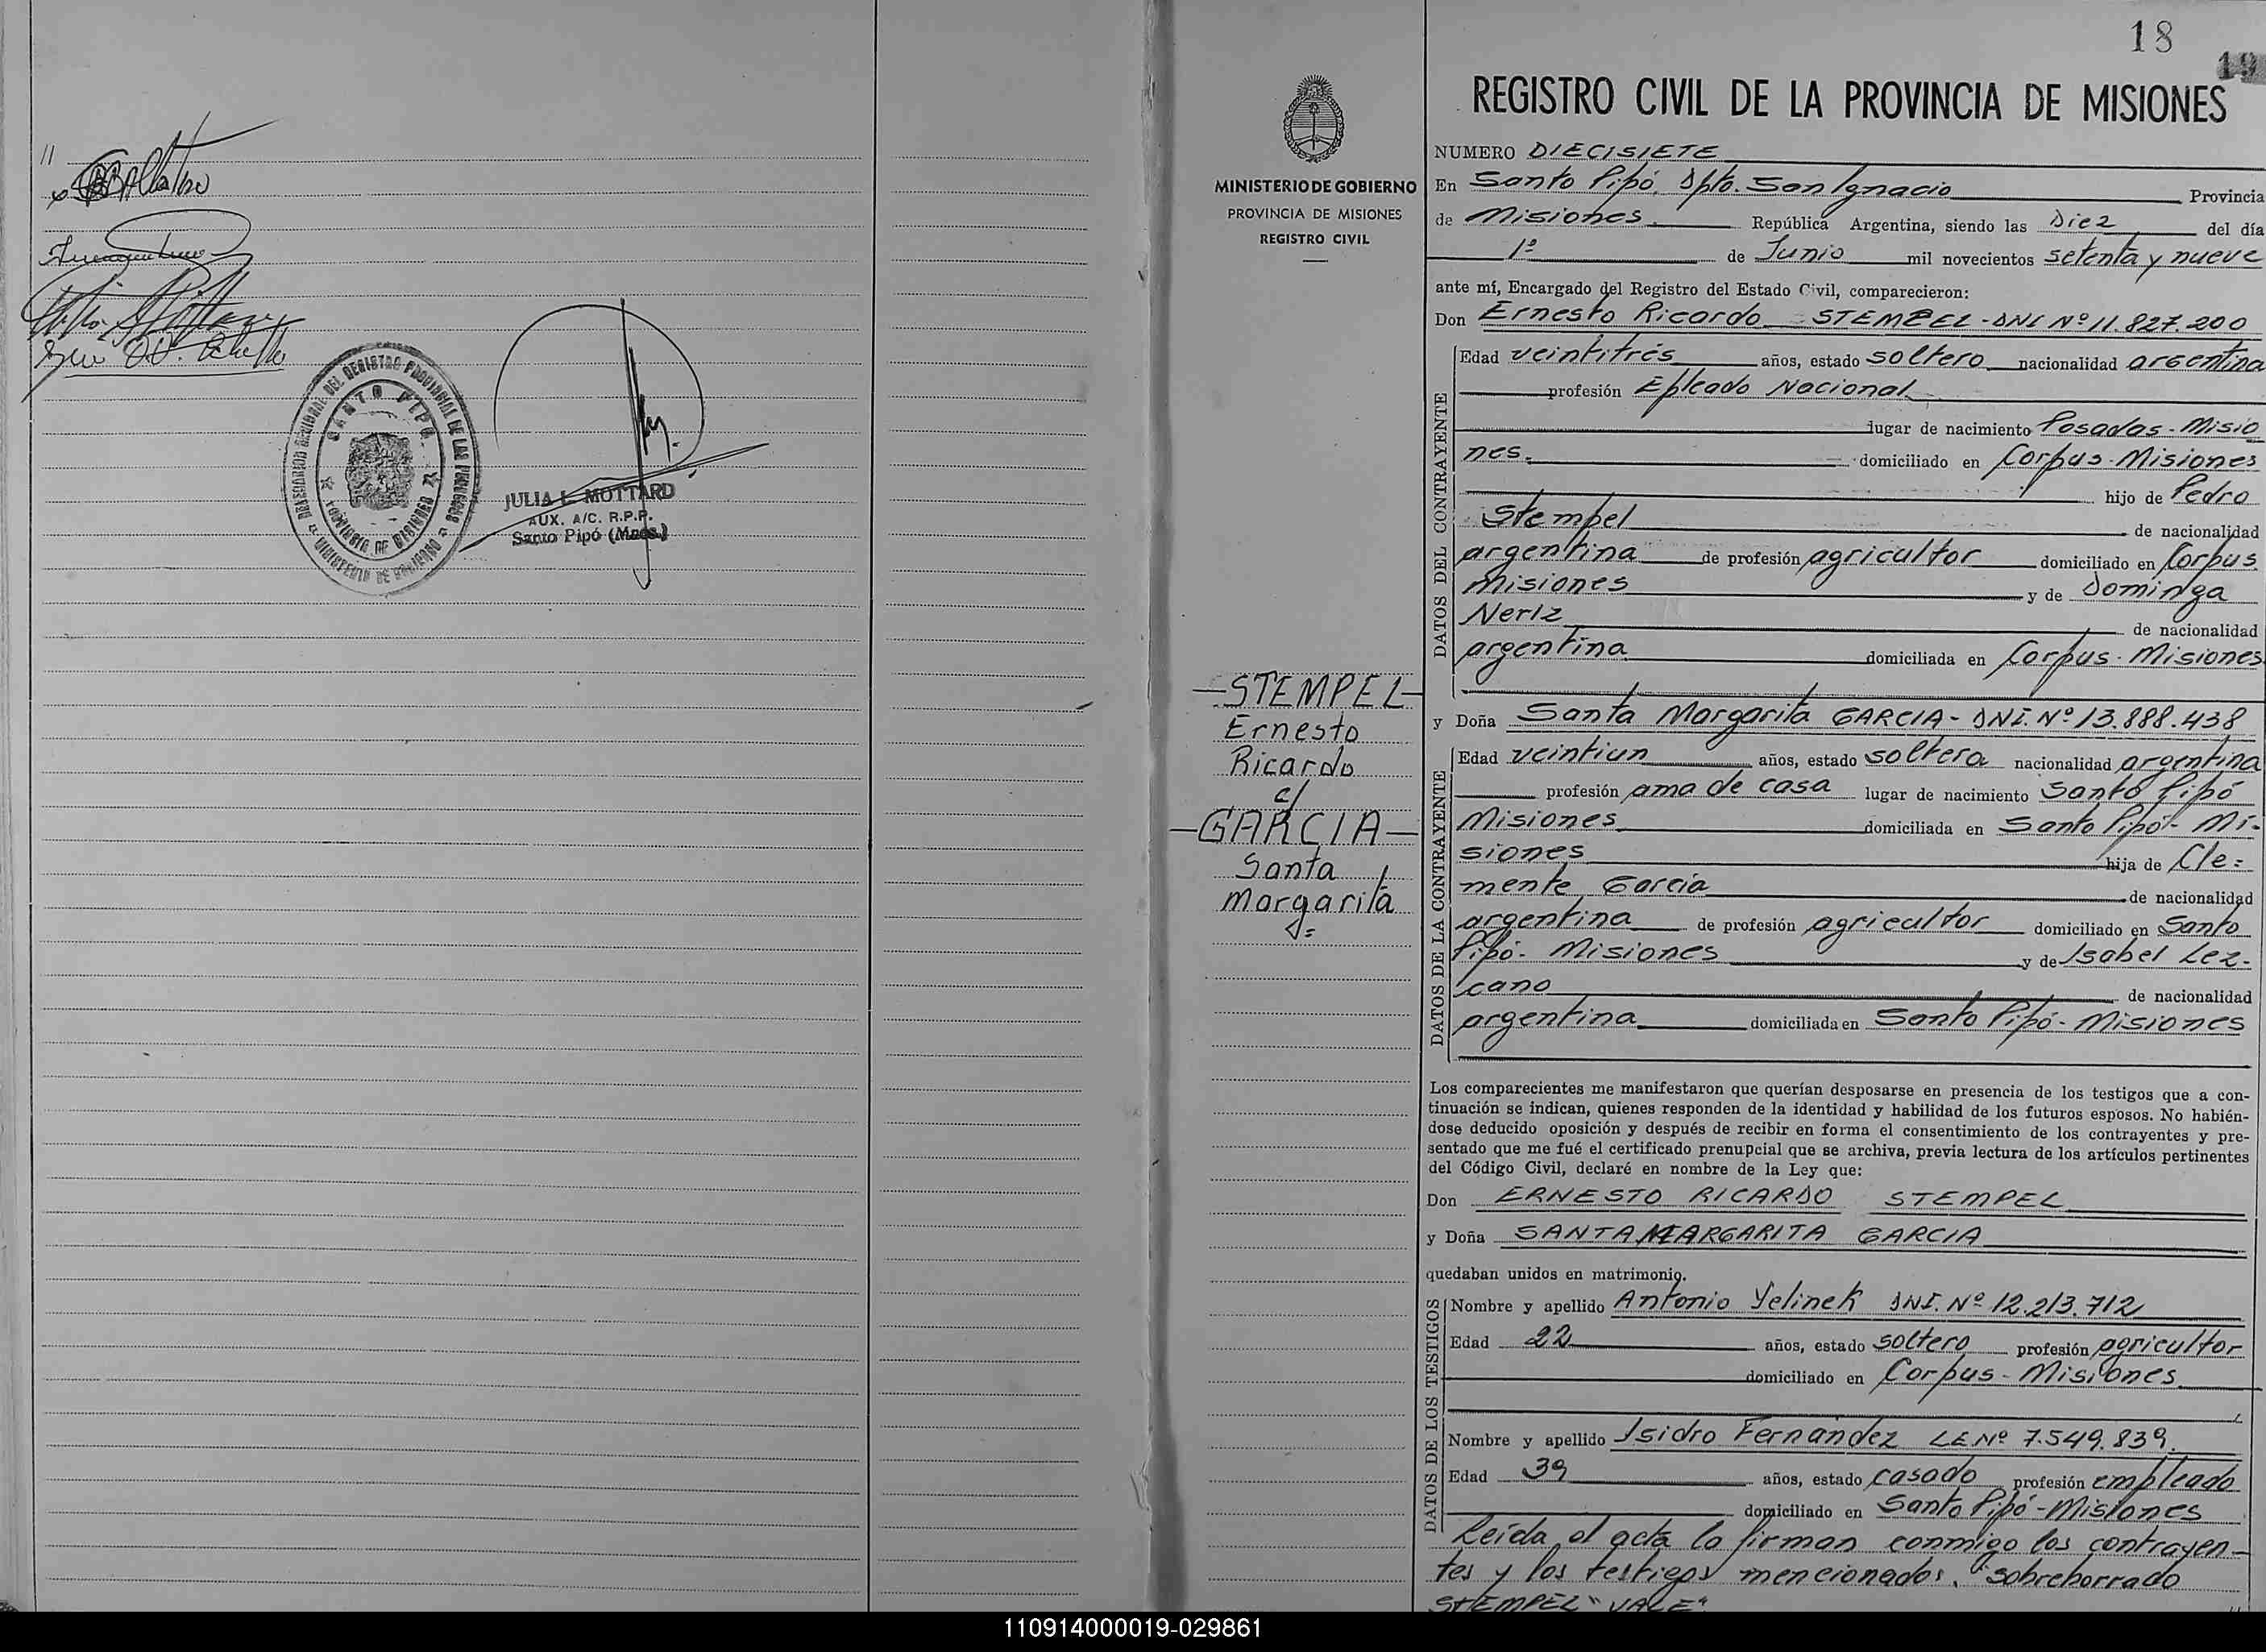 //
SANTO PIPÓ
JULIA L. MOTTARD
AUX. A/C. R.P.P.
Santo Pipó (Mnes.)
18
19
REGISTRO CIVIL DE LA PROVINCIA DE MISIONES
MINISTERIO DE GOBIERNO
PROVINCIA DE MISIONES
REGISTRO CIVIL
—STEMPEL—
Ernesto
Ricardo
c/
—GARCIA—
Santa
Margarita
NUMERO DIECISIETE
En Santo Pipó, Dpto. San Ignacio Provincia
de Misiones. República Argentina, siendo las Diez del día
1º de Junio mil novecientos setenta y nueve
ante mí, Encargado del Registro del Estado Civil, comparecieron:
Don Ernesto Ricardo STEMPEL - DNI Nº 11.827.200
DATOS DEL CONTRAYENTE
Edad veintitrés años, estado soltero nacionalidad argentina
profesión Epleado Nacional
lugar de nacimiento Posadas - Misio
nes. domiciliado en Corpus - Misiones
hijo de Pedro
Stempel de nacionalidad
argentina de profesión agricultor domiciliado en Corpus
Misiones y de Dominga
Neriz de nacionalidad
argentina domiciliada en Corpus - Misiones
y Doña Santa Margarita GARCIA - DNI. Nº 13.888.438
DATOS DE LA CONTRAYENTE
Edad veintiun años, estado soltera nacionalidad argentina
profesión ama de casa lugar de nacimiento Santo Pipó
Misiones domiciliada en Santo Pipó - Mi-
siones hija de Cle=
mente Garcia de nacionalidad
argentina de profesión agricultor domiciliado en Santo
Pipó - Misiones y de Isabel Lez-
cano de nacionalidad
argentina domiciliada en Santo Pipó - Misiones
Los comparecientes me manifestaron que querían desposarse en presencia de los testigos que a con-
tinuación se indican, quienes responden de la identidad y habilidad de los futuros esposos. No habién-
dose deducido oposición y después de recibir en forma el consentimiento de los contrayentes y pre-
sentado que me fué el certificado prenupcial que se archiva, previa lectura de los artículos pertinentes
del Código Civil, declaré en nombre de la Ley que:
Don ERNESTO RICARDO STEMPEL
y Doña SANTA MARGARITA GARCIA
quedaban unidos en matrimonio.
DATOS DE LOS TESTIGOS
Nombre y apellido Antonio Yelinek DNI. Nº 12.213.712
Edad 22 años, estado soltero profesión agricultor
domiciliado en Corpus - Misiones
Nombre y apellido Isidro Fernández LE Nº 7.549.839.
Edad 39 años, estado casado profesión empleado
domiciliado en Santo Pipó - Misiones
Leída el acta la firman conmigo los contrayen-
tes y los testigos mencionados. "Sobreborrado
STEMPEL" VALE"
110914000019-029861